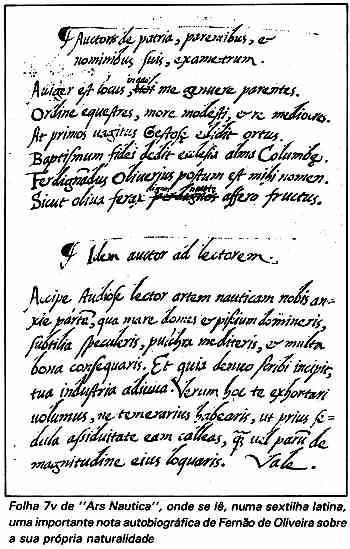 ¶ Auctoris de patria, parentibus, &
nominibus suis, exametrum.
Avager est locus, in quo me genuere parentes.
Ordine equestres, more modesti, & re mediocres.
At primos vagitus Gestosę elidit ortus.
Baptismum fidei dedit ecclesia alma Columbę.
Ferdignādus Oliverius postum est mihi nomen.
Sicut oliva ferax affero fructus.
¶ Idem auctor ad lectorem.
Accipe studiose lector artem nauticam nobis an-
xie partā, qua mare domes & piscium domineris,
subtilia speculeris, pulchra mediteris, & multa
bona consequaris. Et quia denuo scribi incipit,
tua industria adiuva. Verum hoc te exhortari
volumus, ne temerarius habearis, ut prius se-
dula assiduitate eam calleas, vel parū de
magnitudine eius loquaris. Vale.
Folha 7v de "Ars Nautica", onde se lê, numa sextilha latina,
uma importante nota autobiográfica de Fernão de Oliveira sobre
a sua própria naturalidade